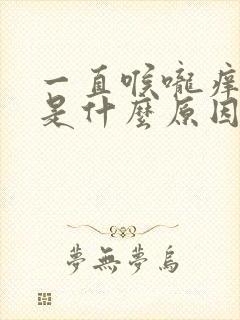 一直喉嚨痒
是什麼原因
夢無夢烏